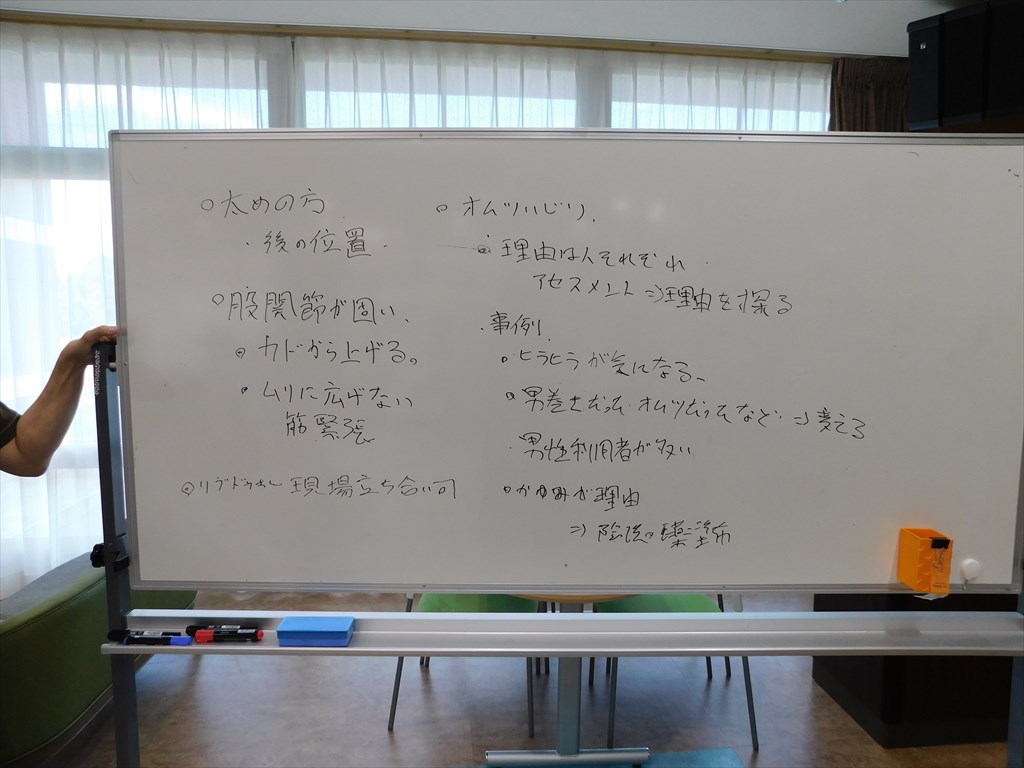 ○太めの方
・後の位置.
○股関節が固い.
○カドから上げる。
・ムリに広げない
筋緊張
◎リブドゥさん 現場立ち合い可
○オムツいじり.
・理由は人それぞれ.
アセスメント⇒理由を探る
・事例.
○ヒラヒラが気になる
○男巻きだって・オムツだってなど⇒変える
・男性利用者が多い
○かゆみが理由
⇒陰洗・薬塗布